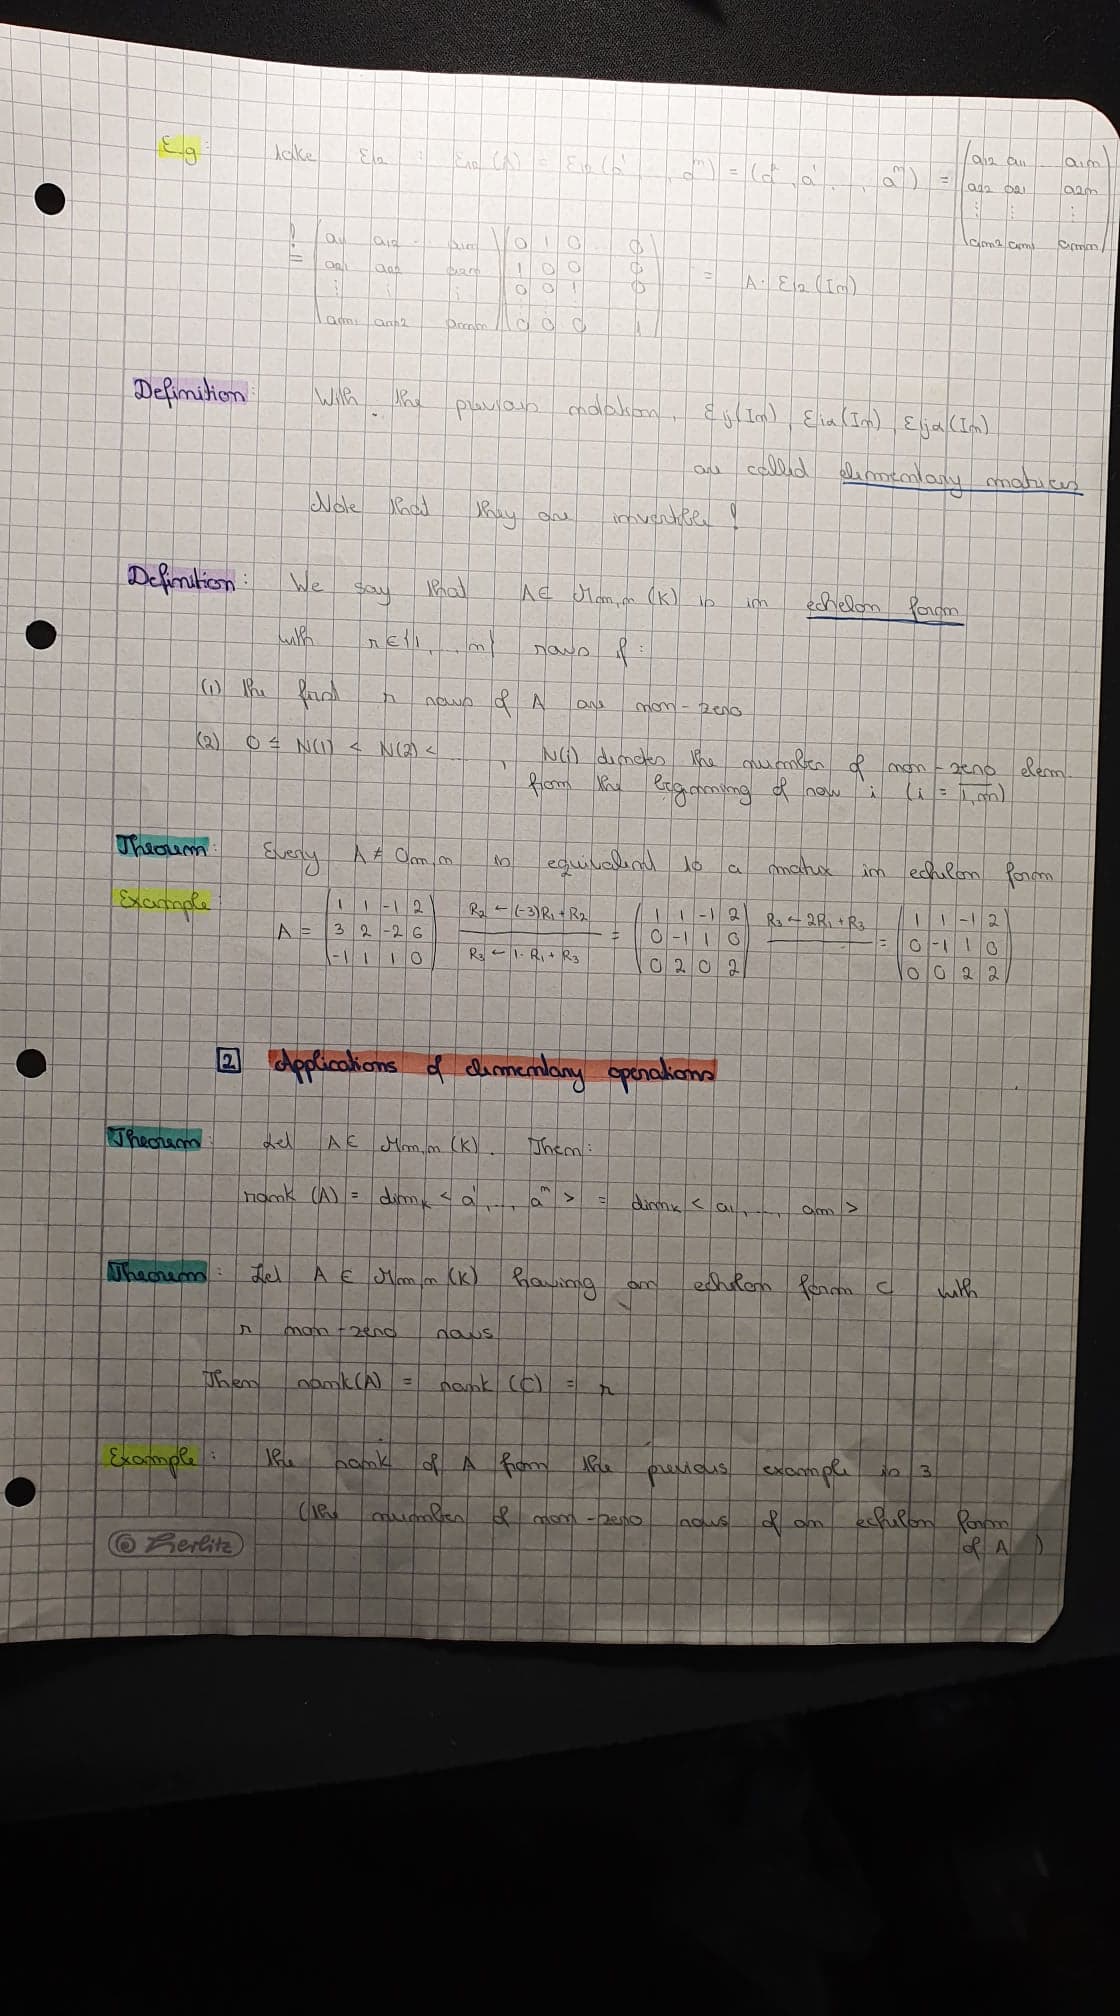 E.g: take ε12 : ε12(A) = ε12(a¹, ..., aⁿ) = (a², a¹, ..., aⁿ) = (a12 a11 ... a1n
a22 a21 a2n
⋮ ⋮ ⋮
am2 am1 amn)
! = (a11 a12 ... a1n) (0 1 0 ... 0)
a21 a22 a2n 1 0 0 0 = A · ε12(In)
⋮ ⋮ ⋮ 0 0 1 0
am1 am2 amn 0 0 0 1
Definition: With the previous notation, εij(In), εiα(In), εijα(In)
are called elementary matrices
Note that they are invertible!
Definition: We say that A ∈ Mm,n(K) is in echelon form
with r ∈ {1, ..., m} rows if:
(1) the first r rows of A are non-zero
(2) 0 ≤ N(1) < N(2) < ..., N(i) denotes the number of non-zero elem.
from the beginning of row i (i = 1,m)
Theorem: Every A ≠ Om,n is equivalent to a matrix in echelon form
Example: A = (1 1 -1 2 R2 ← (-3)R1 + R2 = (1 1 -1 2 R3 ← 2R1 + R3 = (1 1 -1 2
3 2 -2 6 0 -1 1 0 0 -1 1 0
-1 1 1 0) R3 ← 1·R1 + R3 0 2 0 2) 0 0 2 2)
2 Applications of elementary operations
Theorem: Let A ∈ Mm,n(K). Then:
rank(A) = dimK < a¹, ..., aⁿ > = dimK < a1, ..., am >
Theorem: Let A ∈ Mm,n(K) having an echelon form C with
r non-zero rows
Then rank(A) = rank(C) = r
Example: the rank of A from the previous example is 3
(the number of non-zero rows of an echelon form
of A)
© Zerlitz